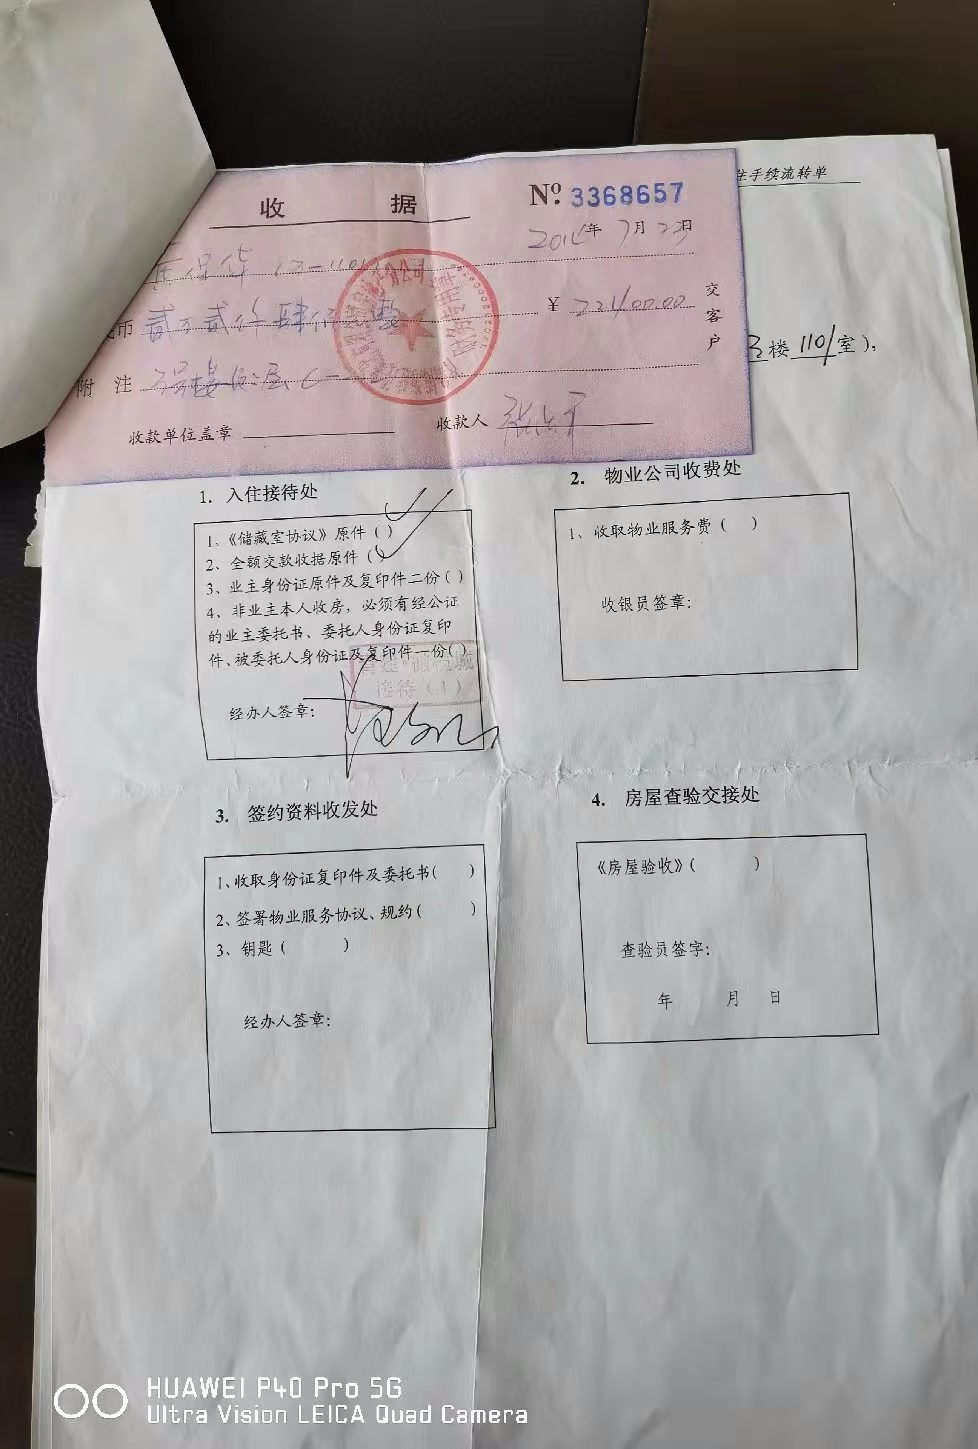 住手续流转单
收 据
Nº 3368657
2014年7月23日
13-1101
币 贰万贰仟肆佰 整
¥ 22400.00
交客户
附 注 号楼
收款单位盖章
收款人
楼 1101 室),
1. 入住接待处
1、《储藏室协议》原件（）
2、全额交款收据原件（）
3、业主身份证原件及复印件二份（）
4、非业主本人收房，必须有经公证
的业主委托书、委托人身份证复印
件、被委托人身份证及复印件一份（）
接待（1）
经办人签章：
2. 物业公司收费处
1、收取物业服务费（ ）
收银员签章：
3. 签约资料收发处
1、收取身份证复印件及委托书（ ）
2、签署物业服务协议、规约（ ）
3、钥匙（ ）
经办人签章：
4. 房屋查验交接处
《房屋验收》（ ）
查验员签字：
年 月 日
HUAWEI P40 Pro 5G
Ultra Vision LEICA Quad Camera